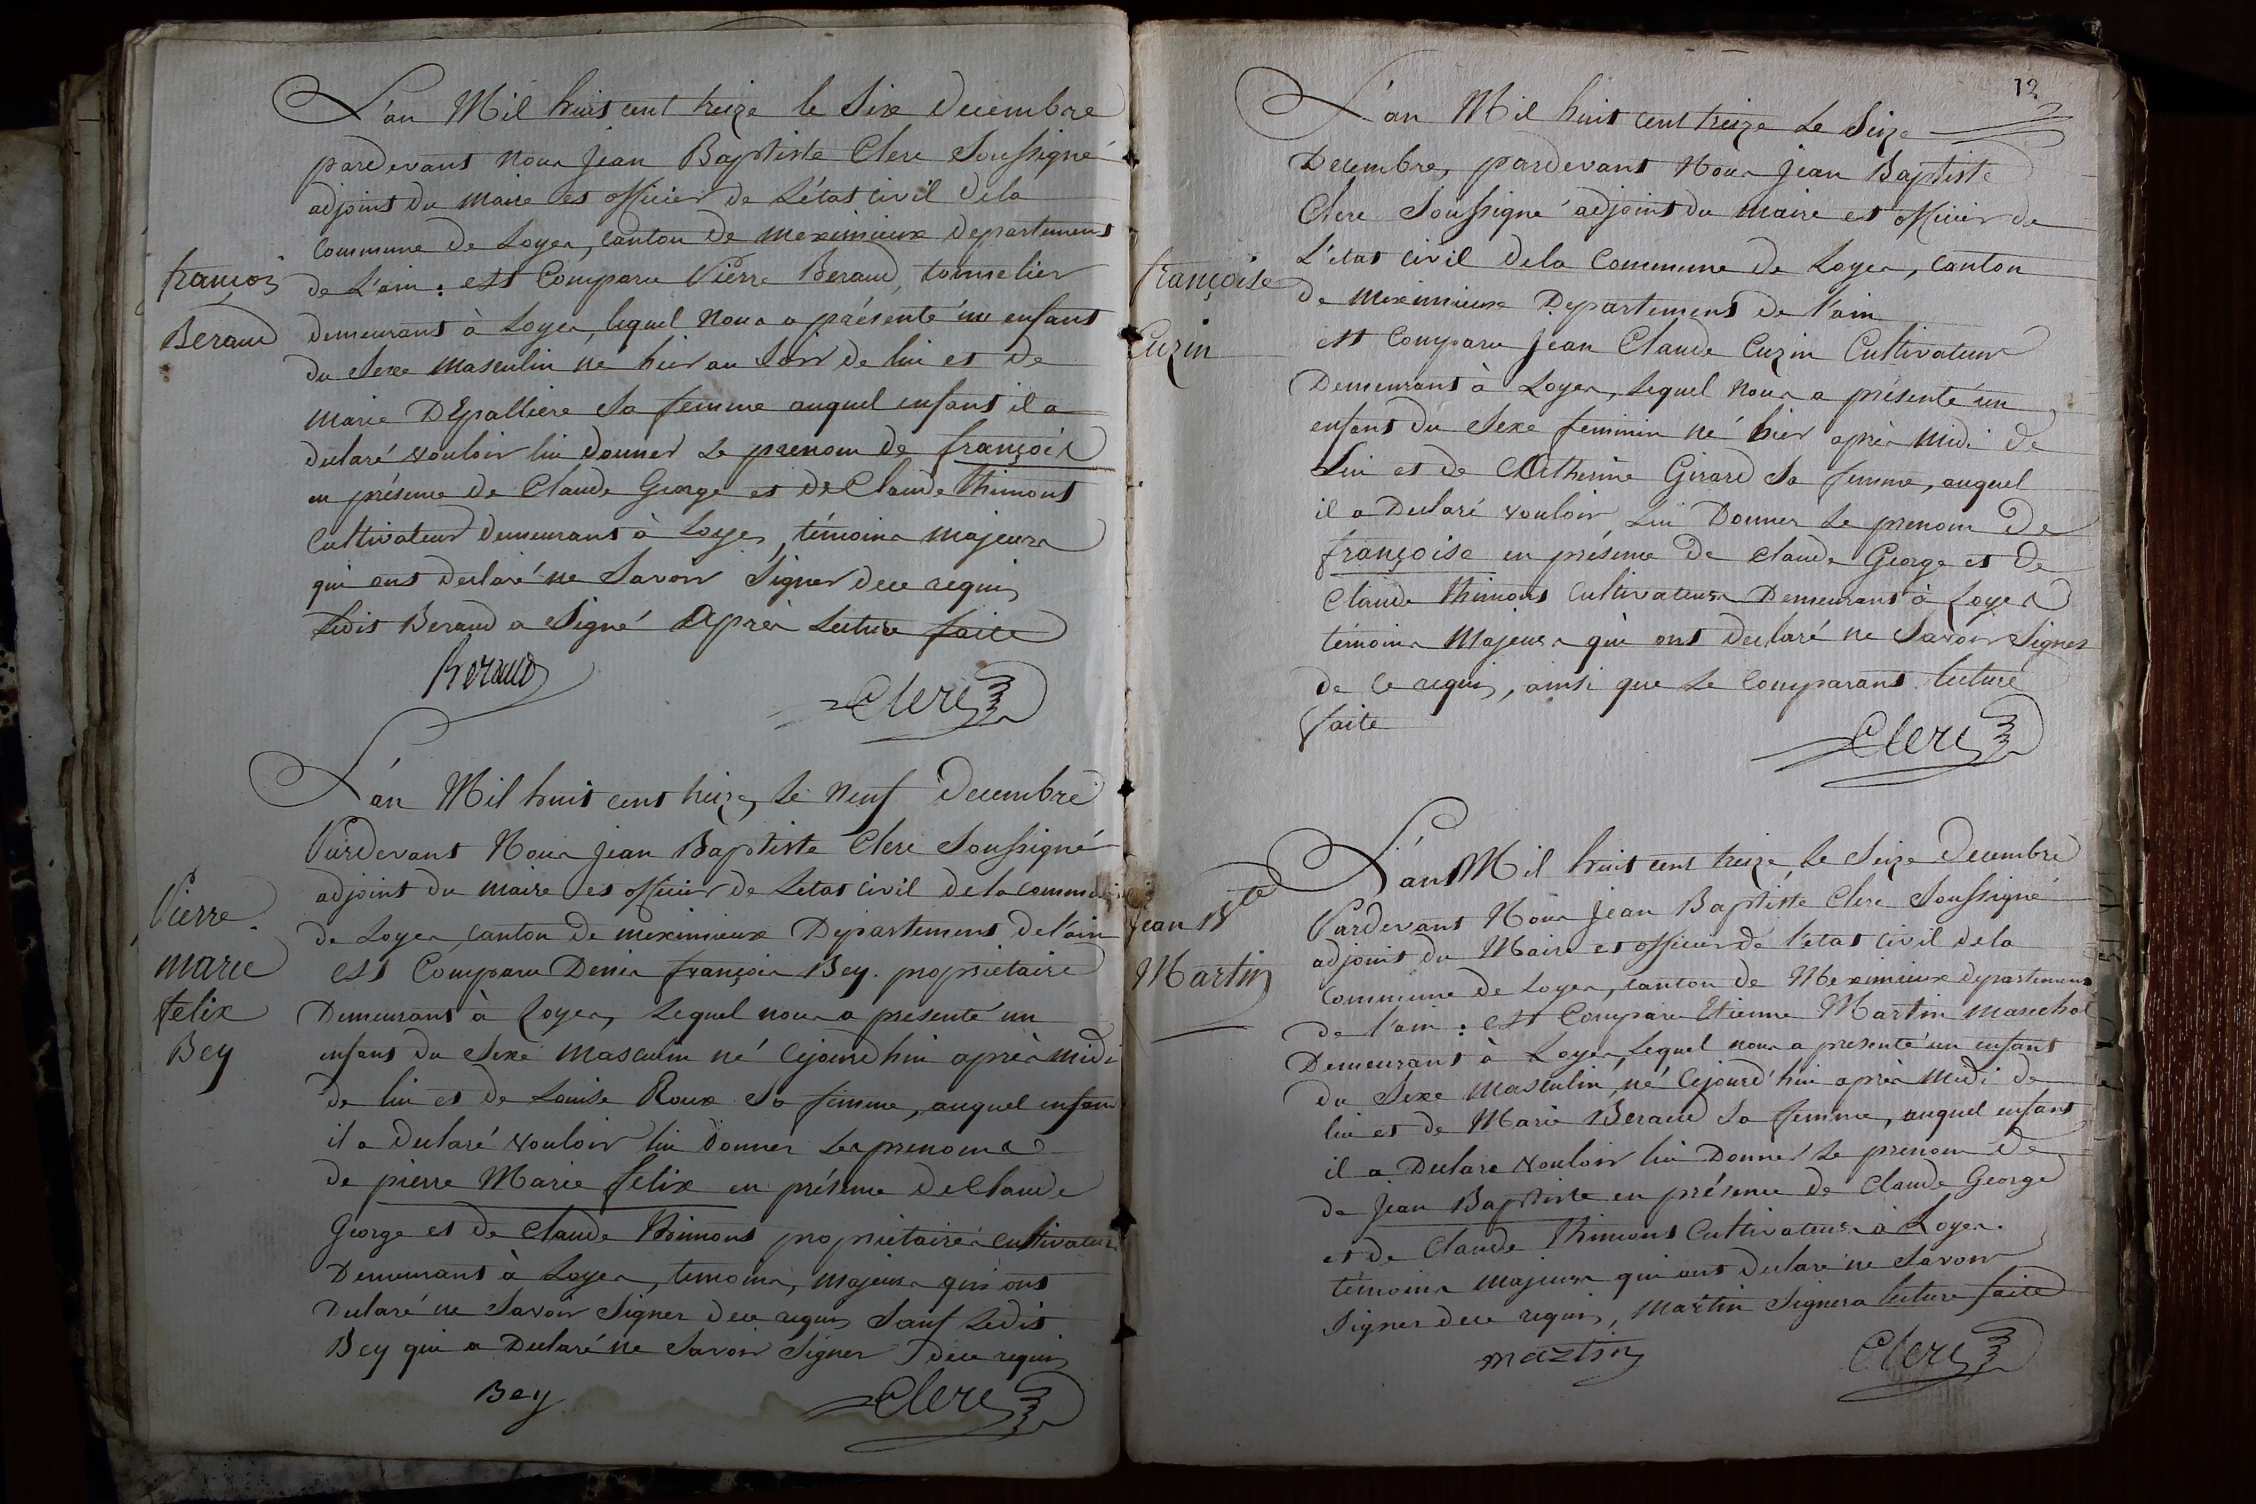 L'an Mil huit cent treize le Six decembre
pardevant nous Jean Baptiste Clerc Soussigné
adjoint du maire et officier de L'état civil dela
Commune de Loyes, canton de meximieux departement
françois
de L'ain : est Comparu Pierre Beraud, tonnelier
Beraud
demeurant à Loyes, lequel nous a présenté un enfant
du Sexe masculin né hier au Soir de lui et de
marie DEpalliere Sa femme auquel enfant il a
declaré vouloir lui donner Le prenom de françois
en présence de Claude George et de Claude Thimont
Cultivateur demeurant à Loyes, témoins majeurs
qui ont declaré ne Savoir Signer dece requis
Ledit Beraud a Signé Après Lecture faite
Beraud
Clerc
L'an Mil huit cent treize, Le neuf Decembre
Pardevant Nous Jean Baptiste Clerc Soussigné
adjoint du maire et officier de Letat civil de la commune
Pierre
de Loyes, canton de meximieux Departement de l'ain
marie
est Comparu Denis françois Bey. propriétaire
felix
Demeurant à Loyes, Lequel nous a presenté un
Bey
enfant du Sexe masculin né Cejourdhui après midi
de lui et de Louise Roux Sa femme, auquel enfant
il a Declaré vouloir lui donner Les prenoms
de pierre Marie felix en présence de Claude
George et de Claude Thimont propriétaires cultivateurs
Demeurant à Loyes, temoins, majeurs qui ont
Declaré ne Savoir Signer dece requis Sauf Ledit
Bey qui a Declaré ne Savoir Signer dece requis
Bey
Clerc
12
L'an Mil huit cent treize Le Seize
Decembre, pardevant Nous Jean Baptiste
Clerc Soussigné adjoint du maire et officier de
L'etat civil dela Commune de Loyes, canton
françoise
de meximieux Departement de l'ain
Cuzin
est Comparu Jean Claude Cuzin Cultivateur
Demeurant à Loyes, Lequel nous a présenté un
enfant du Sexe feminin né hier après midi de
Lui et de Catherine Girard Sa femme, auquel
il a Declaré vouloir Lui Donner Le prenom de
françoise en présence de Claude George et de
Claude Thimont Cultivateurs Demeurant à Loyes
témoins Majeurs qui ont Declaré ne Savoir Signer
de ce requis, ainsi que Le Comparant. Lecture
faite
Clerc
L'an Mil huit cent treize, Le Seize Decembre
Pardevant Nous Jean Baptiste Clerc Soussigné
Jean Bte
adjoint du Maire et officier de l'etat civil dela
Martin
Commune de Loyes, canton de Meximieux departement
de l'ain : est Comparu Etienne Martin marechal
Demeurant à Loyes, Lequel nous a presenté un enfant
du Sexe masculin né Cejourd'hui après midi de
lui et de Marie Beraud Sa femme, auquel enfant
il a Declaré vouloir lui Donner Le prenom de
de Jean Baptiste en présence de Claude George
et de Claude Thimont Cultivateurs à Loyes.
témoins majeurs qui ont Declaré ne Savoir
Signer dece requis, Martin Signera lecture faite
martin
Clerc